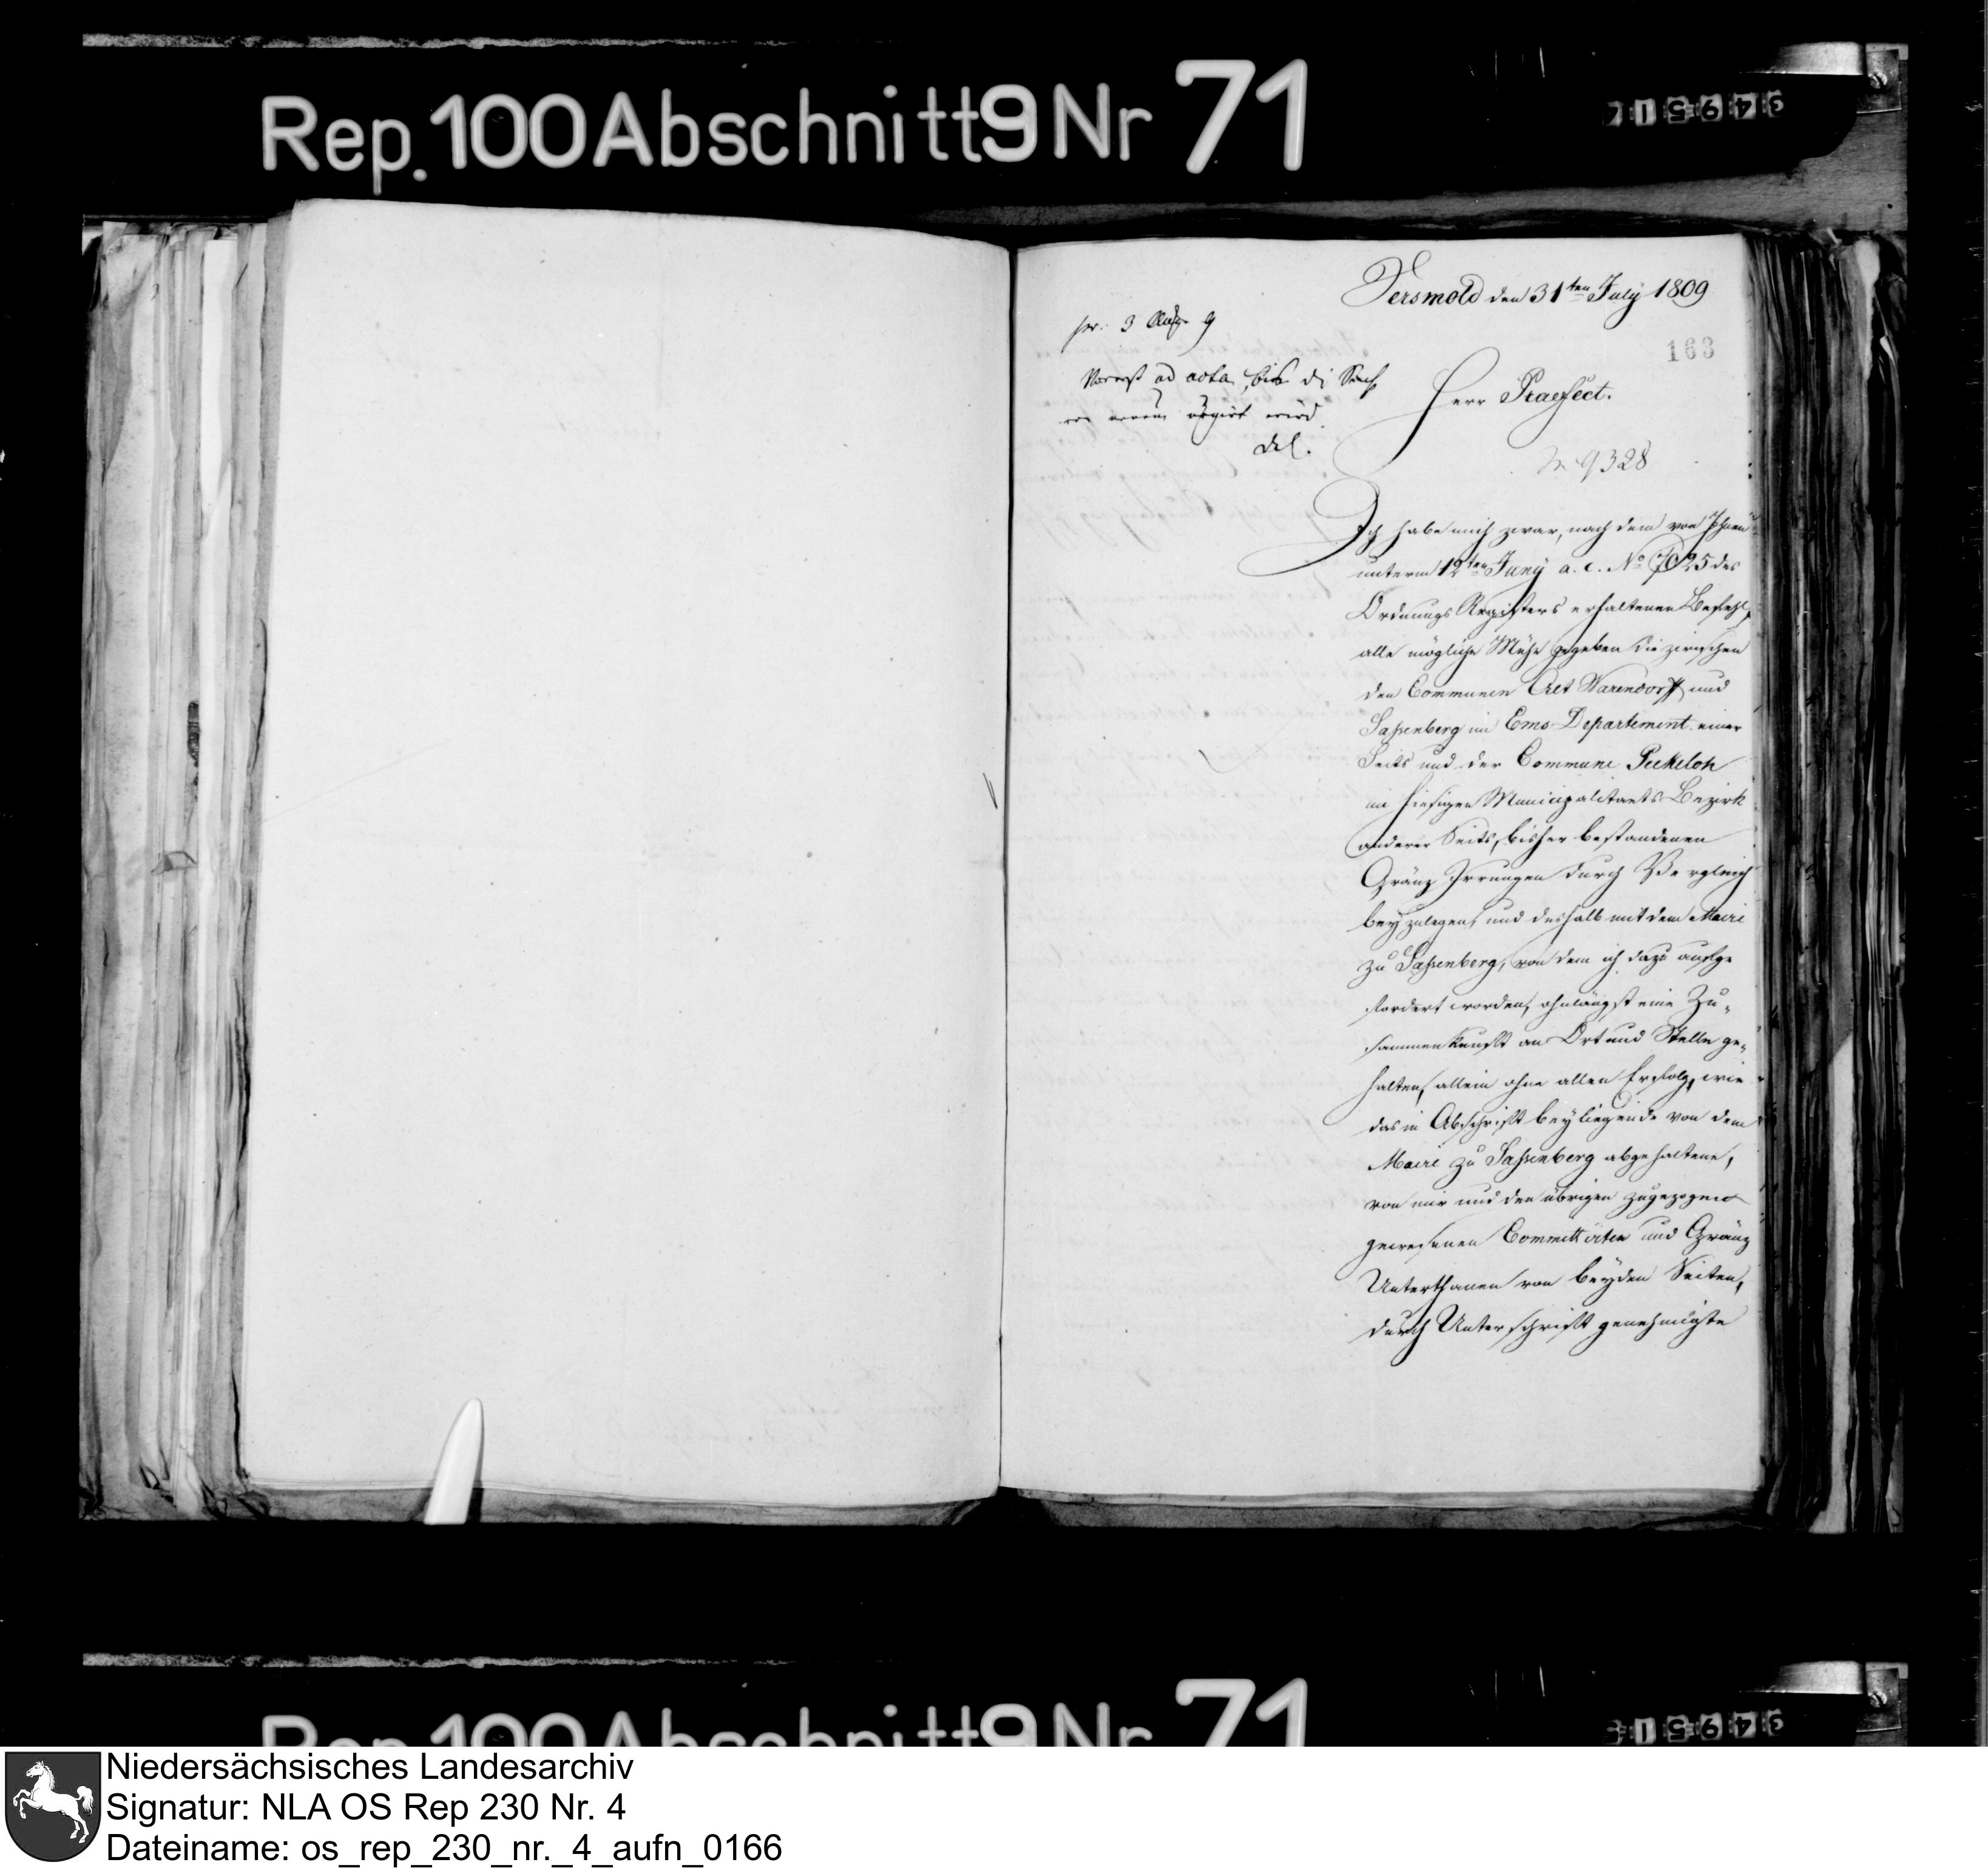 Rep. 100 Abschnitt 9 Nr 71
Versmold den 31ten July 1809
pr: 3 Aug. 9
163
Vorerst ad acta, bis die Sache
urgirt wird.
Herr Praefect.
9328
Ich habe mich zwar, nach dem von Ihnen
unterm 12ten Juny a. c. No 7025 des
Ordnungs Registers erhaltenen Befehl,
alle mögliche Mühe gegeben die zwischen
den Communen Alt Warendorff und
Saßenberg im Ems-Departement einer
Seits und der Commune Peckeloh
im hiesigen Municipalitaets-Bezirk
anderer Seits, bisher bestandenen
Gränz Irrungen durch Vergleich
beyzulegen, und deshalb mit dem Maire
zu Saßenberg, von dem ich dazu aufge
fordert worden, ohnlängst eine Zu-
sammenkunft an Ort und Stelle ge-
halten, allein ohne allen Erfolg, wie
das in Abschrift beyliegende von dem
Maire zu Saßenberg abgehaltene,
von mir und den übrigen zugezogen
gewesenen Committirten und Gränz
Unterthanen von beyden Seiten,
durch Unterschrift genehmigte
Rep. 100 Abschnitt 9 Nr 71
Niedersächsisches Landesarchiv
Signatur: NLA OS Rep 230 Nr. 4
Dateiname: os_rep_230_nr._4_aufn_0166